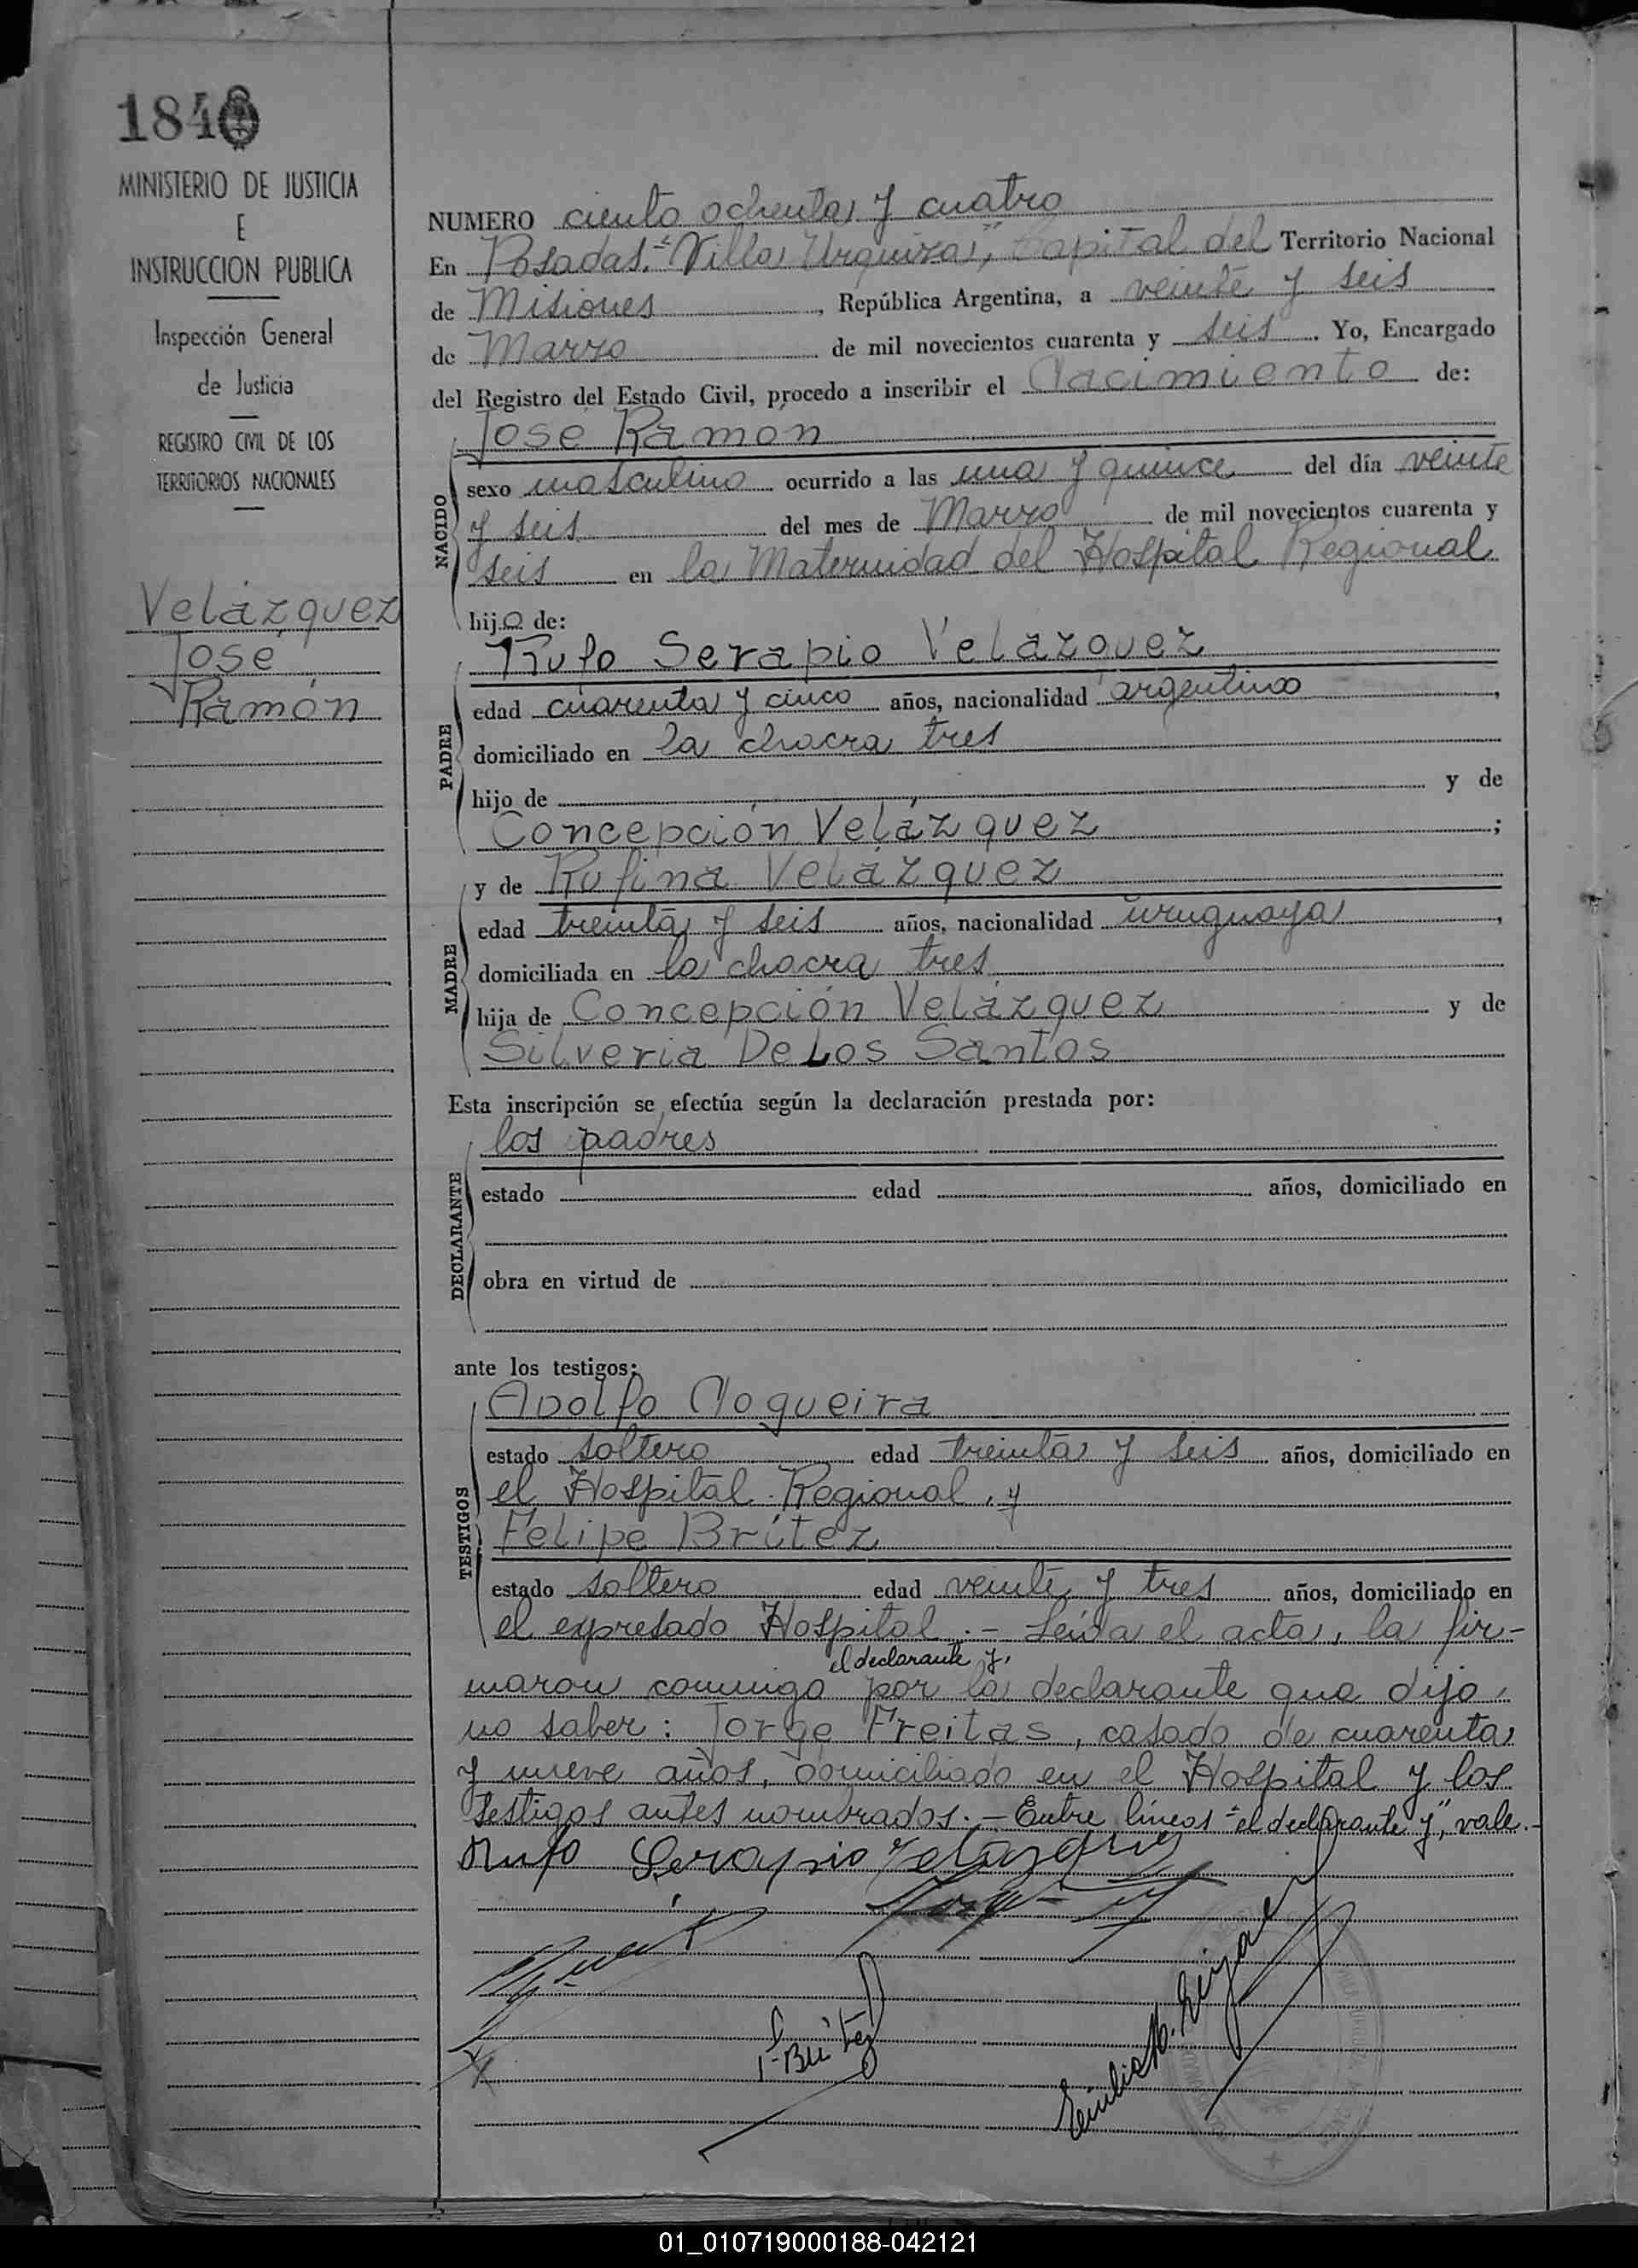 184
MINISTERIO DE JUSTICIA
E
INSTRUCCION PUBLICA
Inspección General
de Justicia
REGISTRO CIVIL DE LOS
TERRITORIOS NACIONALES
Velázquez
José
Ramón
NUMERO ciento ochenta y cuatro
En Posadas, "Villa Urquiza", Capital del Territorio Nacional
de Misiones, República Argentina, a veinte y seis
de Marzo de mil novecientos cuarenta y seis. Yo, Encargado
del Registro del Estado Civil, procedo a inscribir el Nacimiento de:
NACIDO
José Ramón
sexo masculino ocurrido a las una y quince del día veinte
y seis del mes de Marzo de mil novecientos cuarenta y
seis en la Maternidad del Hospital Regional
hijo de:
PADRE
Rufo Serapio Velázquez
edad cuarenta y cinco años, nacionalidad argentino,
domiciliado en la chacra tres
hijo de y de
Concepción Velázquez;
MADRE
y de Rufina Velázquez
edad treinta y seis años, nacionalidad uruguaya,
domiciliada en la chacra tres
hija de Concepción Velázquez y de
Silveria De Los Santos
Esta inscripción se efectúa según la declaración prestada por:
DECLARANTE
los padres
estado edad años, domiciliado en
obra en virtud de
ante los testigos:
TESTIGOS
Adolfo Nogueira
estado soltero edad treinta y seis años, domiciliado en
el Hospital Regional, y
Felipe Britez
estado soltero edad veinte y tres años, domiciliado en
el expresado Hospital.- Leída el acta, la fir-
el declarante y,
maron conmigo por la declarante que dijo
no saber: Jorge Freitas, casado de cuarenta
y nueve años, domiciliado en el Hospital y los
testigos antes nombrados.- Entre líneas "el declarante y", vale.-
Rufo Serapio Velazquez
F. Britez
01_010719000188-042121